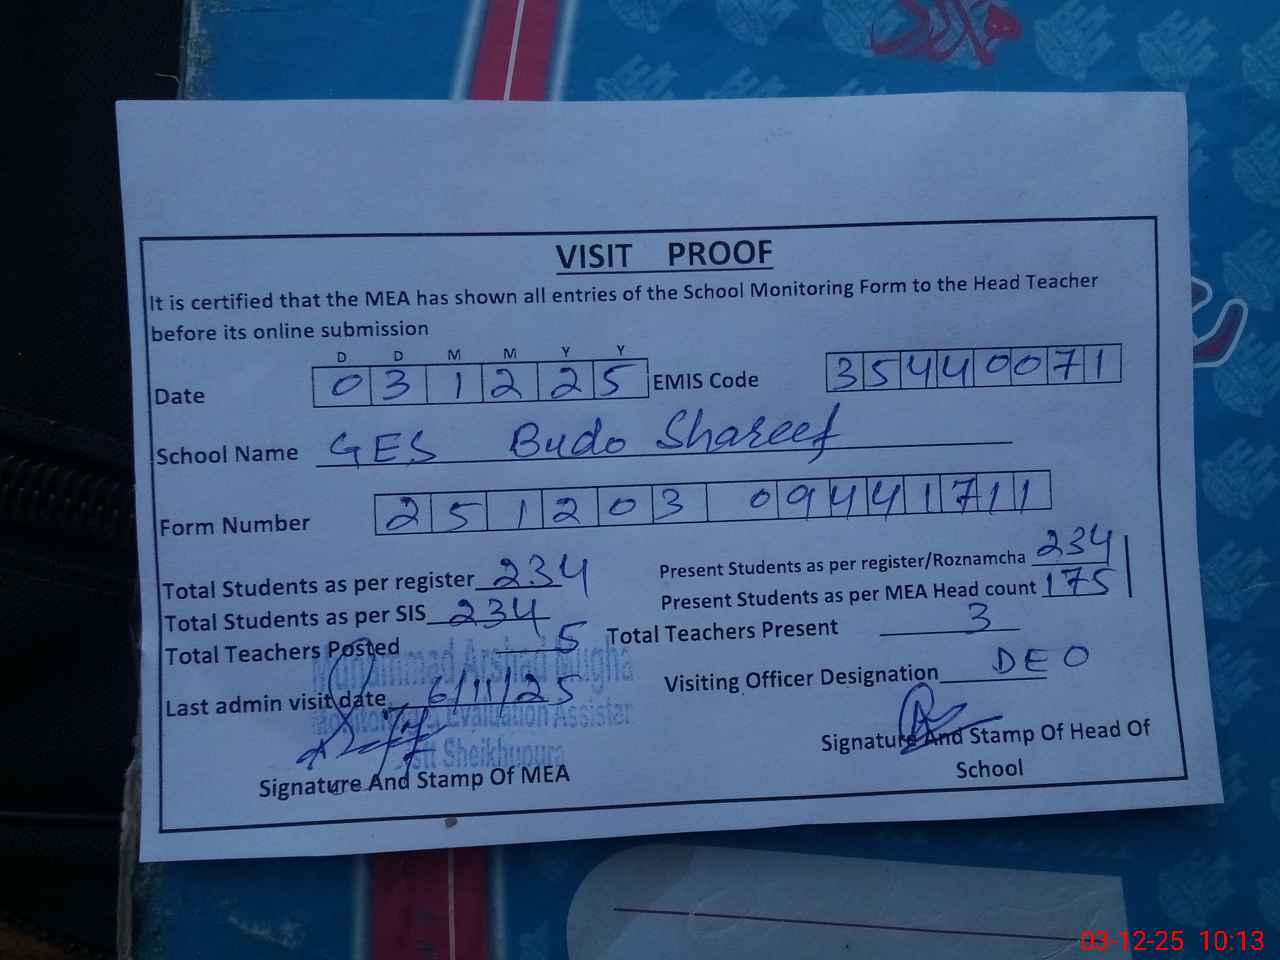 VISIT PROOF
It is certified that the MEA has shown all entries of the School Monitoring Form to the Head Teacher
before its online submission
D D M M Y Y
Date 0 3 1 2 2 5 EMIS Code 3 5 4 4 0 0 7 1
School Name GES Budo Shareef
Form Number 2 5 1 2 0 3 0 9 4 4 1 7 1 1
Total Students as per register 234 Present Students as per register/Roznamcha 234
Total Students as per SIS 234 Present Students as per MEA Head count 175
Total Teachers Posted 5 Total Teachers Present 3
Muhammad Arshad Mugha
Last admin visit date 6/11/25 Visiting Officer Designation DEO
Monitoring & Evaluation Assistan
Distt Sheikhupura
Signature And Stamp Of MEA Signature And Stamp Of Head Of
School
03-12-25 10:13